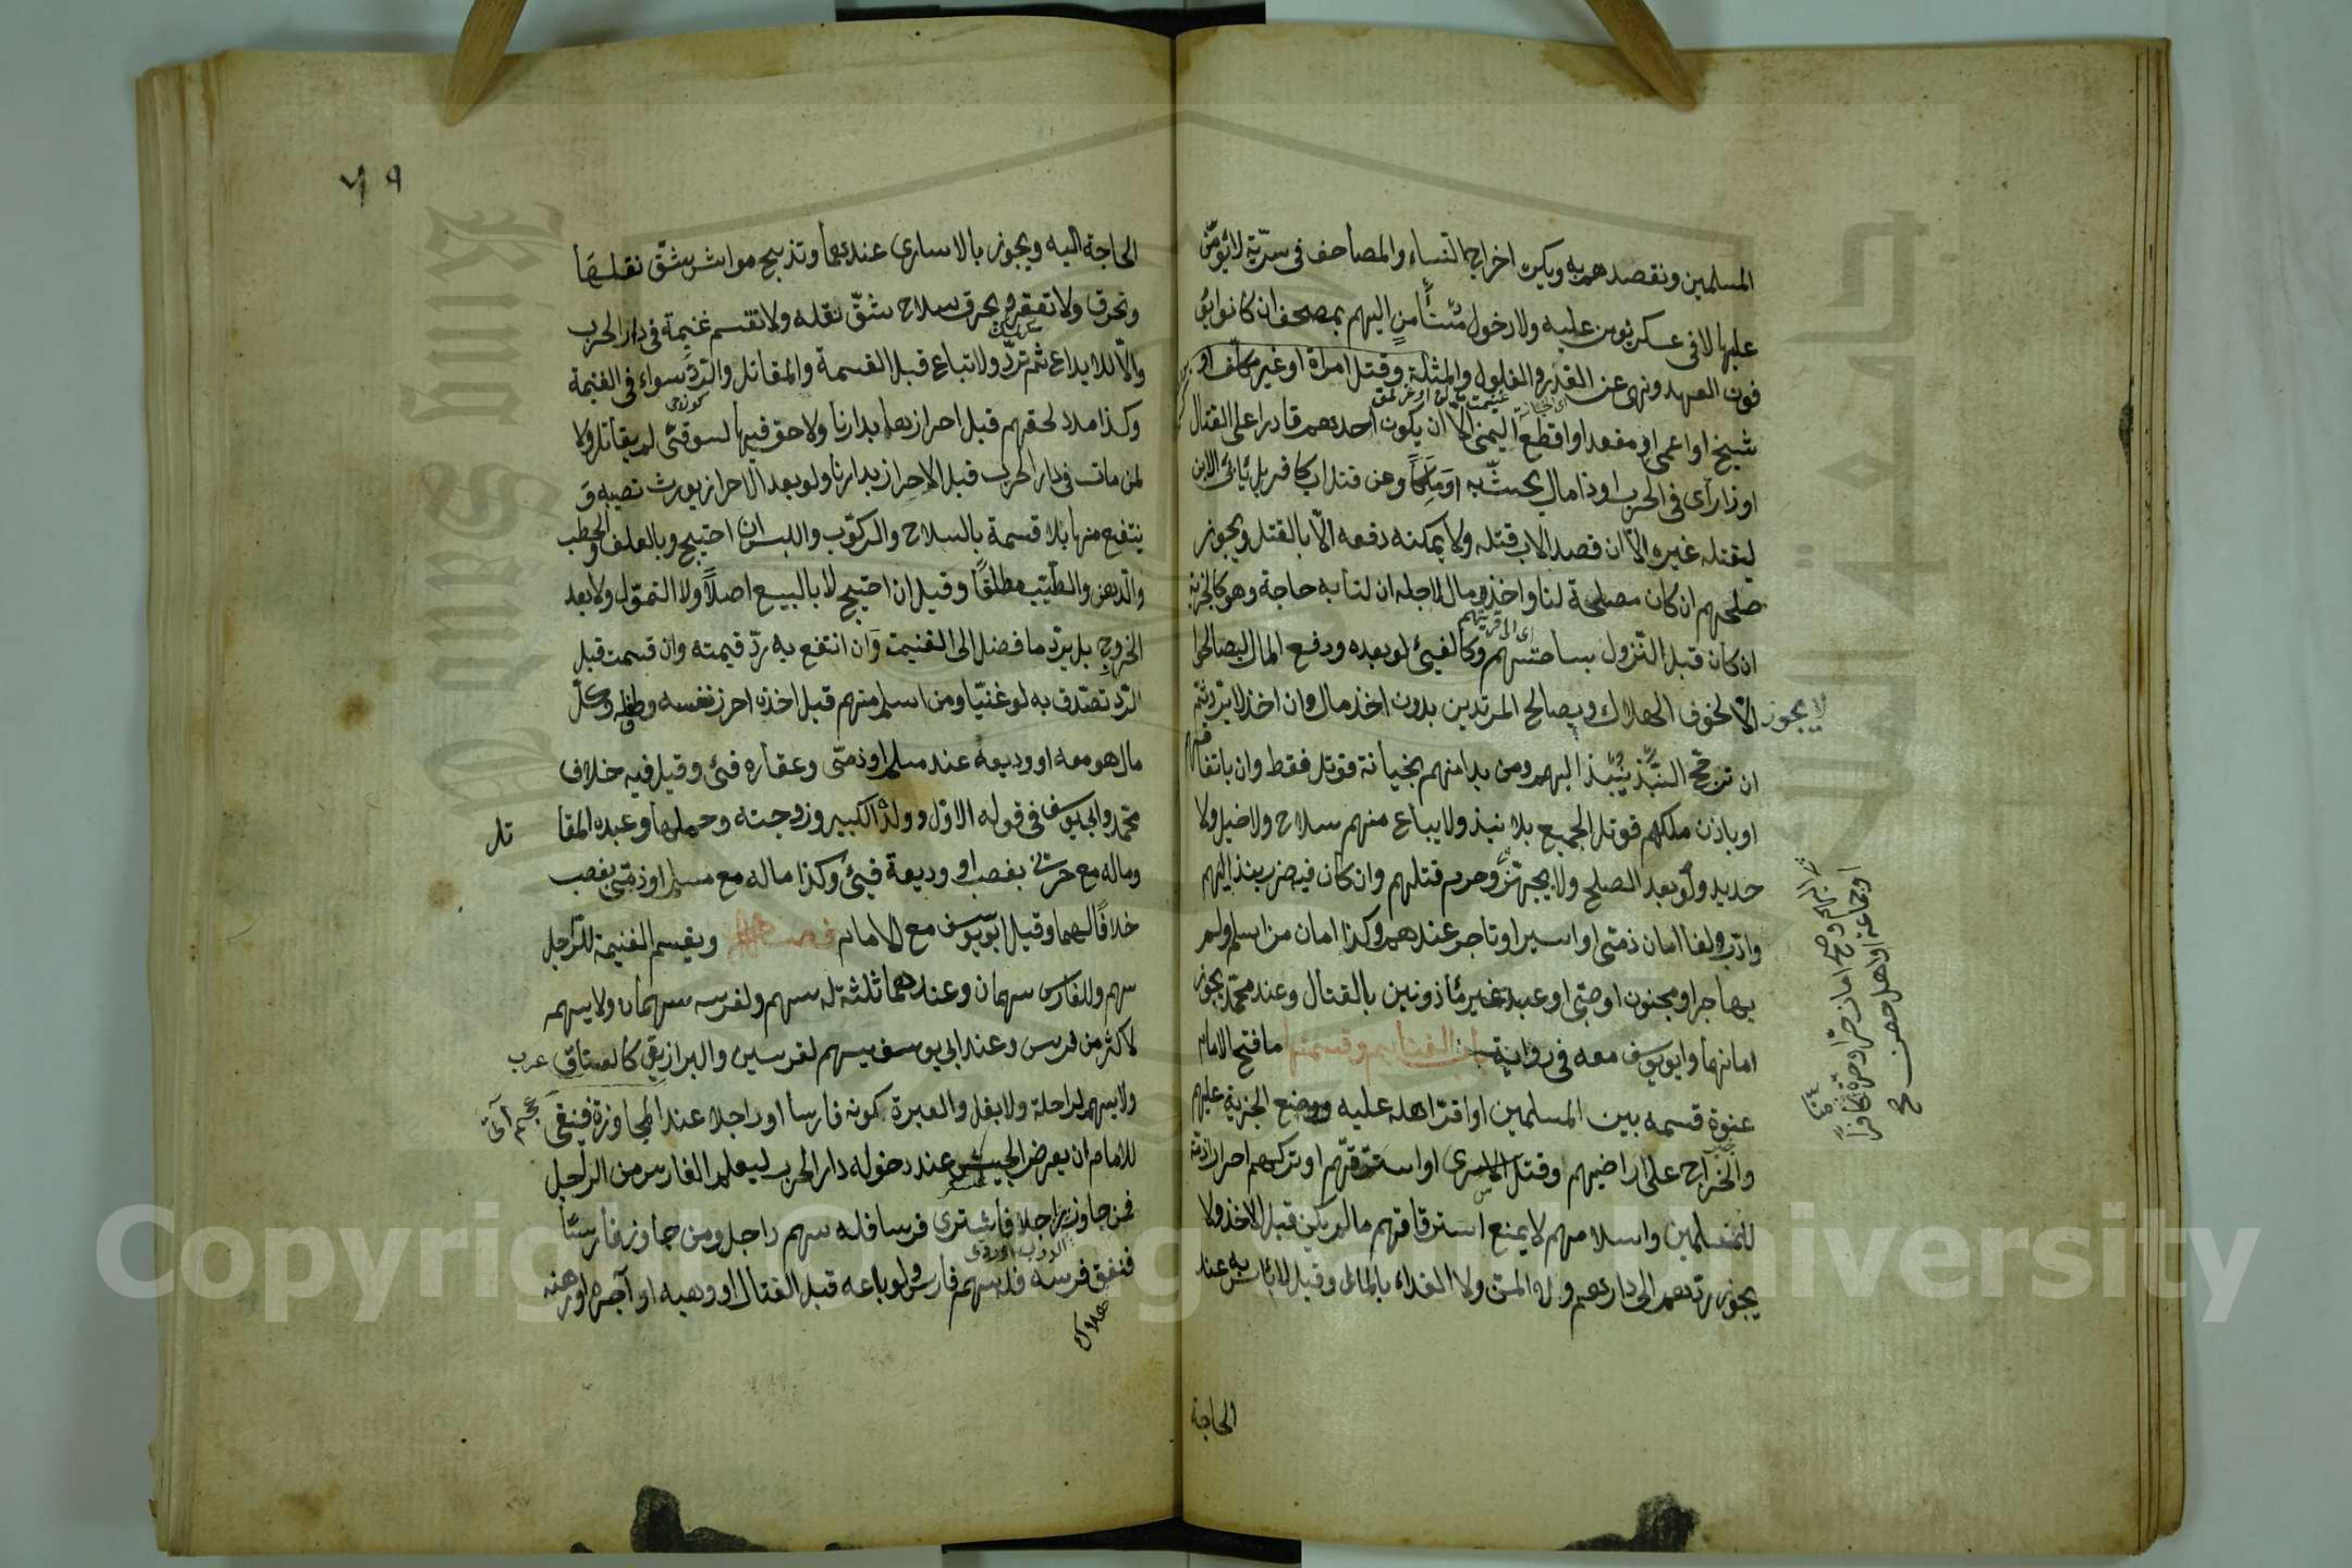 المسلمين ونقصدهم به ويكره اخراج النساء والمصاحف فى سرّية لا يؤمّن
عليها لا فى عسكر يؤمن عليه ولا دخول مستأمن اليهم بمصحف ان كانوا يو
فون العهد ونهى عن الغدر والغلول والمثلة وقتل امراة او غير مكلّف او
شيخ او اعمى او مقعد او اقطع اليمنى الّا ان يكون احدهم قادرا على القتال
او ذا رأى فى الحرب او ذا مال يحثّ به او مَلِكًا وعن قتل اب كافر بل يأبى الابن
ليقتله غيره الّا ان قصد الاب قتله ولا يمكنه دفعه الّا بالقتل ويجوز
صلحهم ان كان مصلحة لنا واخذ مال لاجله ان لنا به حاجة وهو كالجزية
ان كان قبل النّزول بساحتهم وكالفيئ لو بعده ودفع المال ليصالحوا
لا يجوز الّا لخوف الهلاك ويصالح المرتدين بدون اخذ مال وان اخذ لا يردّ ثم
ان ترجّح النّبذ ينبذ اليهم ومن بدا منهم بخيانة قوتل فقط وان باتفاقهم
او باذن ملكهم قوتل الجميع بلا نبذ ولا يباع منهم سلاح ولا خيل ولا
حديد ولو بعد الصلح ولا يجهّز وحرم قتلهم وان كان فيه ضرر ينبذ اليهم
وادّب ولغا امان ذمّى او اسير او تاجر عندهم وكذا امان من اسلم ولم
يهاجر او مجنون او صبىّ او عبد غير مأذونين بالقتال وعند محمّد يجوز
امانهما وابو يوسف معه فى رواية باب الغنايم وقسمتها ما فتح الامام
عنوة قسمه بين المسلمين او اقرّ اهله عليه ووضع الجزية عليهم
والخراج على اراضيهم وقتل الاسرى او استرقّهم او تركهم احرارا ذمّة
للمسلمين واسلامهم لا يمنع استرقاقهم ما لم يكن قبل الاخذ ولا
يجوز ردّهم الى دارهم ولا المنّ ولا الفداء بالمال وقيل لا بأس به عند
الحاجة
٧٩
الحاجة اليه ويجوز بالاسارى عندهما وتذبح مواش شقّ نقلها
وتحرق ولا تعقر ويحرق سلاح شقّ نقله ولا تقسم غنيمة فى دار الحرب
والّا للايداع ثم تردّ ولا تباع قبل القسمة والمقاتل والرّدء سواء فى الغنيمة
وكذا مدد لحقهم قبل احرازها بدارنا ولا حق فيها لسوقىّ لم يقاتل ولا
لمن مات فى دار الحرب قبل الاحراز بدارنا ولو بعد الاحراز يورث نصيبه و
ينتفع منها بلا قسمة بالسلاح والركوب واللبس ان احتيج وبالعلف والحطب
والدهن والطّيب مطلقًا وقيل ان احتيج لا بالبيع اصلًا ولا التموّل ولا بعد
الخروج بل يردّ ما فضل الى الغنيمة وان انتفع به ردّ قيمته وان قسمت قبل
الرّد تصدّق به لو غنيّا ومن اسلم منهم قبل اخذه احرز نفسه وطفله وكلّ
مال هو معه او وديعة عند مسلم او ذمّى وعقاره فئ وقيل فيه خلاف
محمّد وابى يوسف فى قوله الاوّل وولده الكبير وزوجته وحملها وعبده المقا تل
وماله مع حربى بغصب او وديعة فيئ وكذا ماله مع مسلم او ذمّى بغصب
خلافًا لهما وقيل ابو يوسف مع الامام فصل ويقسم الغنيمة للرّاجل
سهم وللفارس سهمان وعندهما ثلثة له سهم ولفرسه سهمان ولا يسهم
لاكثر من فرس وعند ابى يوسف يسهم لفرسين والبراذين كالعتاق عرب
ولا يسهم لراحلة ولا بغل والعبرة كونه فارسا او راجلا عند المجاوزة فينبغى
للامام ان يعرض الجيش عند دخوله دار الحرب ليعلم الفارس من الراجل
فمن جاوز راجلا فاشترى فرسا فله سهم راجل ومن جاوز فارسا
فنفق فرسه فله سهم فارس ولو باعه قبل القتال او وهبه او آجره او رهنه
هلاك